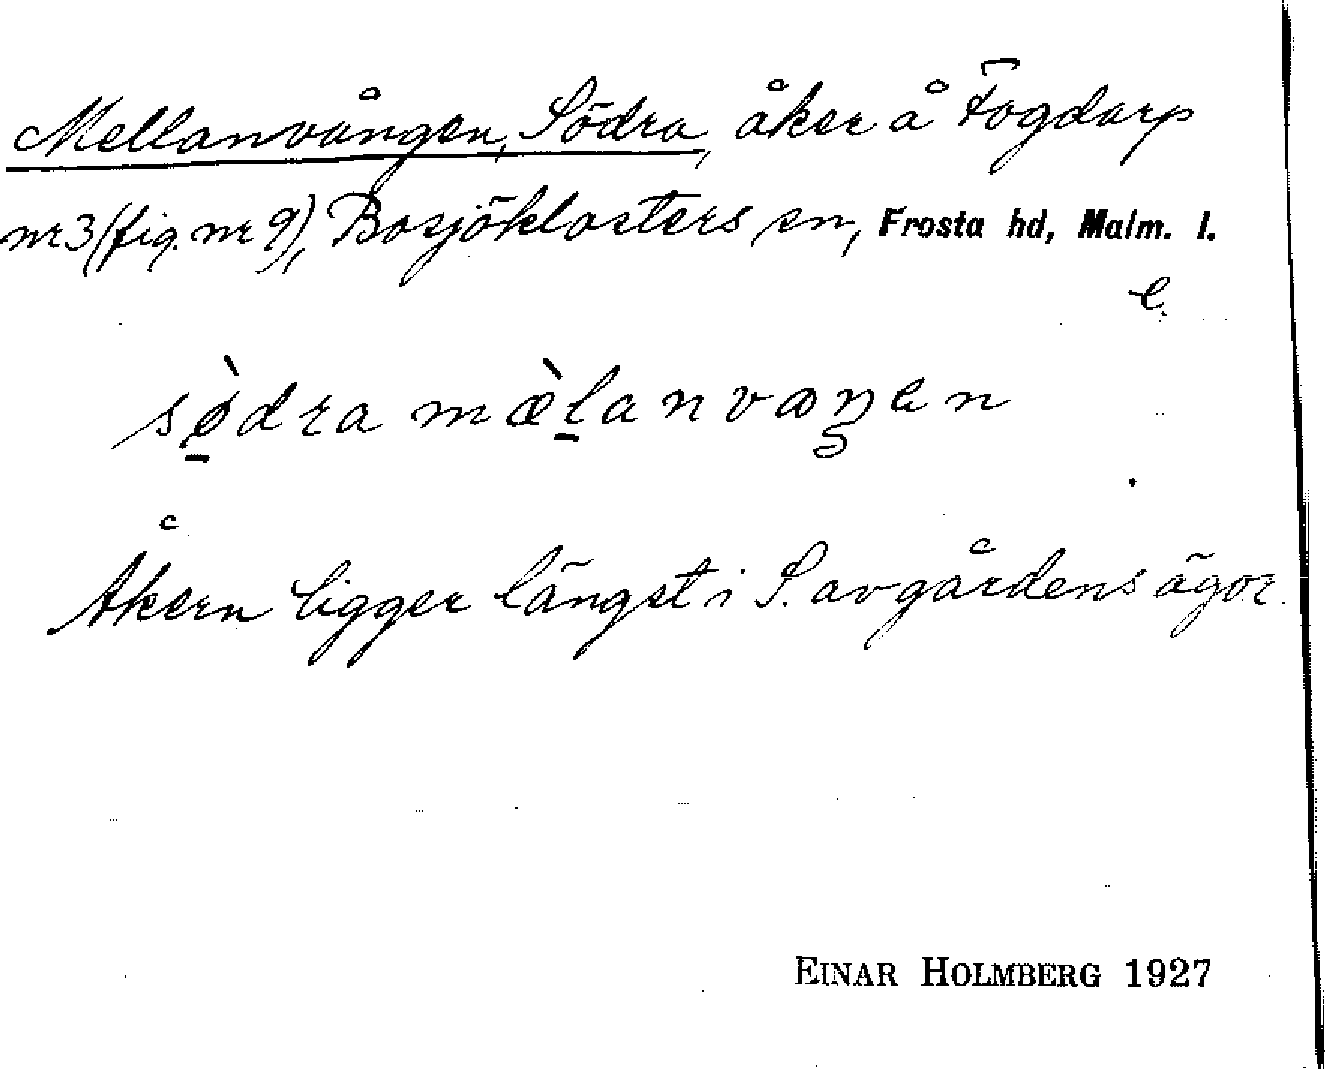 Mellanvången, Södra, åker å Fogdarp
nr 3 (fig. nr 9), Bosjöklosters sn, Frosta hd, Malm. l.
e.
sø̀dra mæ̀lanvaŋen
Åkern ligger längst i S. av gårdens ägor.
EINAR HOLMBERG 1927